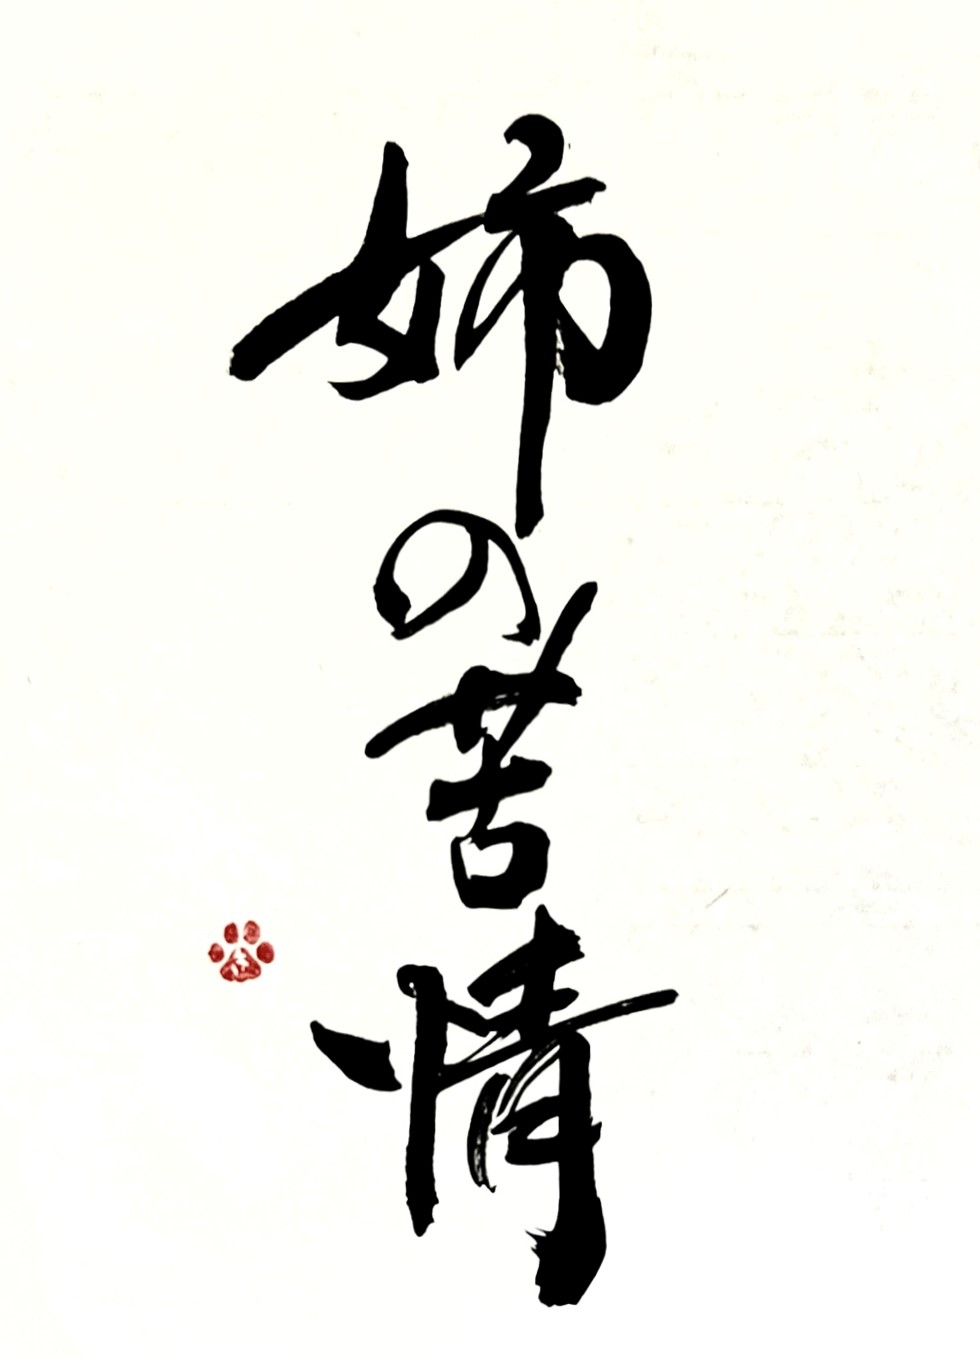 姉の苦情